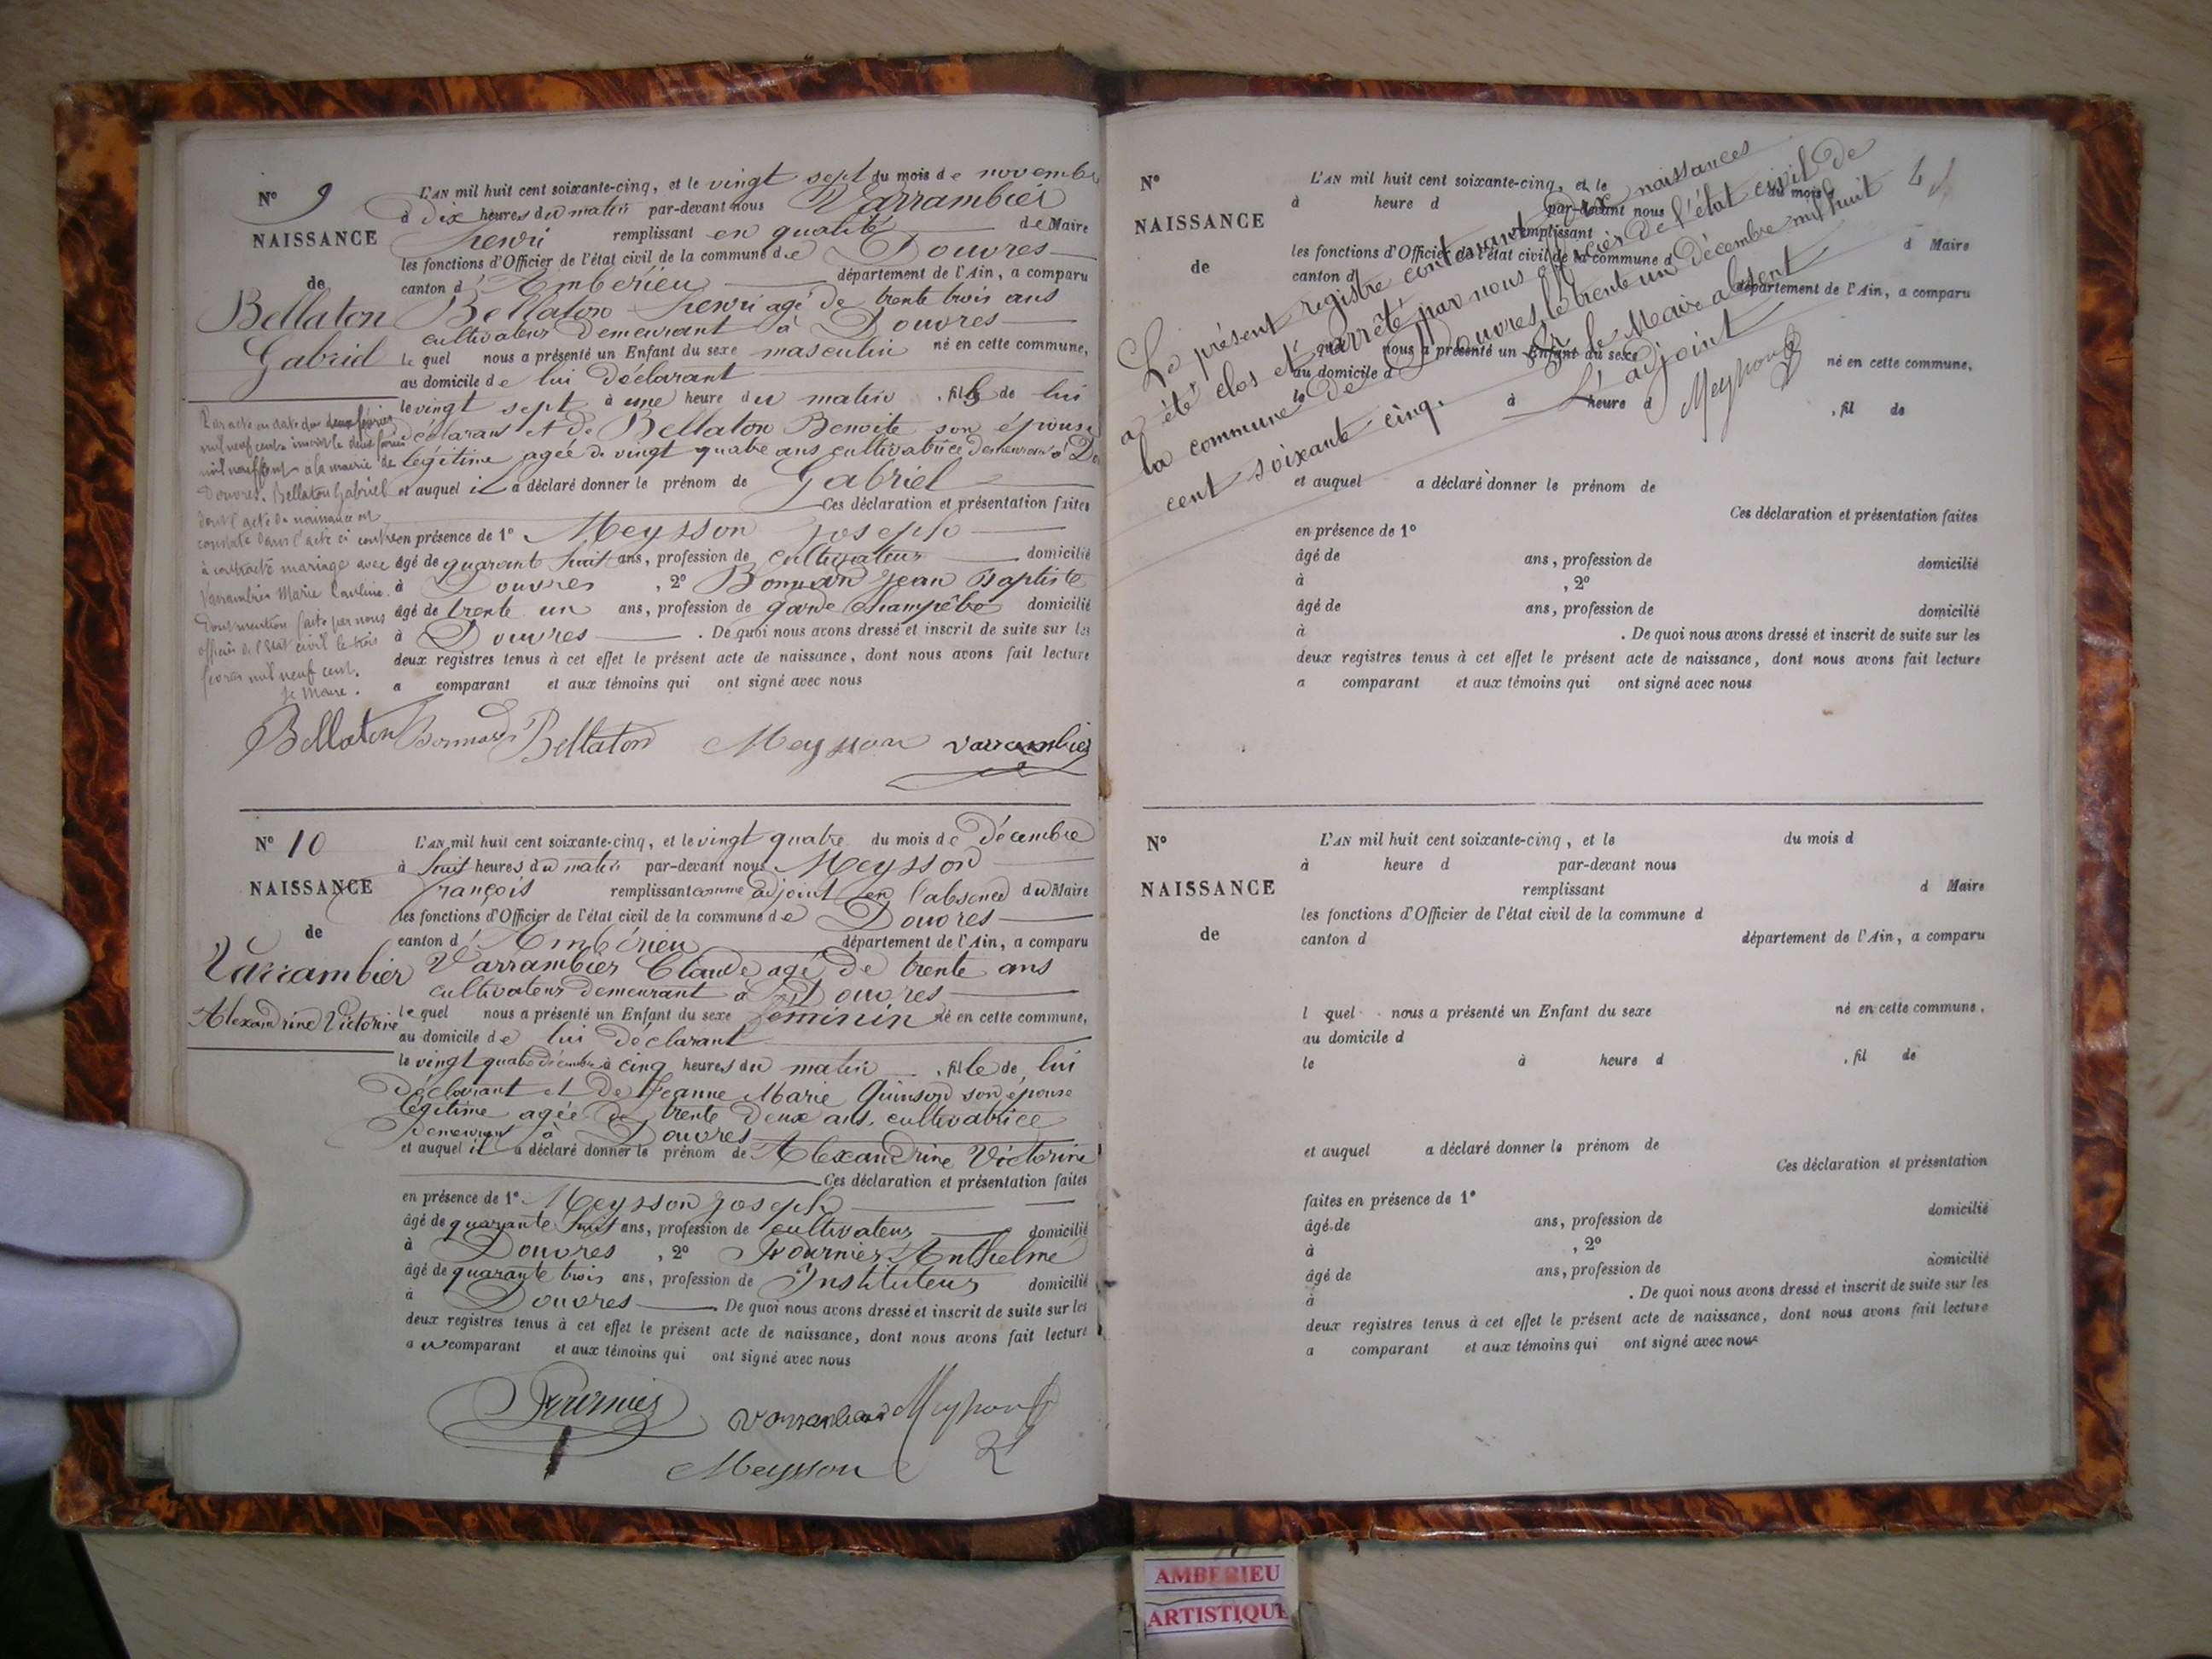 N° 9
NAISSANCE
de
Bellaton
Gabriel
L'AN mil huit cent soixante-cinq, et le vingt sept du mois de novembre
à dix heures du matin par-devant nous Varrambier
henri remplissant en qualité de Maire
les fonctions d'Officier de l'état civil de la commune de Douvres
canton d'Ambérieu département de l'Ain, a comparu
Bellaton henri agé de trente trois ans
cultivateur demeurant à Douvres
le quel nous a présenté un Enfant du sexe masculin né en cette commune,
au domicile de lui déclarant
le vingt sept à une heure du matin, fils de lui
déclarant et de Bellaton Benoite son épouse
légitime agée de vingt quatre ans cultivatrice demeurant à Do
et auquel il a déclaré donner le prénom de Gabriel
Ces déclaration et présentation faites
en présence de 1° Meysson Joseph
âgé de quarante huit ans, profession de cultivateur domicilié
à Douvres, 2° Bonnard Jean Baptiste
âgé de trente un ans, profession de garde champêtre domicilié
à Douvres. De quoi nous avons dressé et inscrit de suite sur les
deux registres tenus à cet effet le présent acte de naissance, dont nous avons fait lecture
a comparant et aux témoins qui ont signé avec nous
Par acte en date du deux février
mil neuf cent inscrit le deux février
mil neuf cent a la mairie de
Douvres. Bellaton Gabriel
dont l'acte de naissance est
constaté dans l'acte ci contre
à contracté mariage avec
Varrambier Marie
Dont mention faite par nous
officier de l'état civil le trois
février mil neuf cent.
Le Maire.
Bellaton Bonnard Bellaton Meysson Varrambier
N° 10
NAISSANCE
de
Varrambier
Alexandrine Victorine
L'AN mil huit cent soixante-cinq, et le vingt quatre du mois de décembre
à huit heures du matin par-devant nous Meysson
françois remplissant comme adjoint en l'absence du Maire
les fonctions d'Officier de l'état civil de la commune de Douvres
canton d'Ambérieu département de l'Ain, a comparu
Varrambier Claude agé de trente ans
cultivateur demeurant à Douvres
le quel nous a présenté un Enfant du sexe féminin né en cette commune,
au domicile de lui déclarant
le vingt quatre décembre à cinq heures du matin, fille de lui
déclarant et de Jeanne Marie Quinson son épouse
légitime agée de trente deux ans, cultivatrice
demeurant à Douvres
et auquel il a déclaré donner le prénom de Alexandrine Victorine
Ces déclaration et présentation faites
en présence de 1° Meysson Joseph
âgé de quarante huit ans, profession de cultivateur domicilié
à Douvres, 2° Fournier Anthelme
âgé de quarante trois ans, profession de Instituteur domicilié
à Douvres De quoi nous avons dressé et inscrit de suite sur les
deux registres tenus à cet effet le présent acte de naissance, dont nous avons fait lecture
a u comparant et aux témoins qui ont signé avec nous
Fournier Varrambier Meysson
Meysson
N°
NAISSANCE
de
L'AN mil huit cent soixante-cinq, et le du mois
à heure d par-devant nous
remplissant d Maire
les fonctions d'Officier de l'état civil de la commune d
canton d département de l'Ain, a comparu
quel nous a présenté un Enfant du sexe né en cette commune,
au domicile d
le à heure d, fil de
et auquel a déclaré donner le prénom de
Ces déclaration et présentation faites
en présence de 1°
âgé de ans, profession de domicilié
à , 2°
âgé de ans, profession de domicilié
à . De quoi nous avons dressé et inscrit de suite sur les
deux registres tenus à cet effet le présent acte de naissance, dont nous avons fait lecture
a comparant et aux témoins qui ont signé avec nous
Le présent registre contenant dix naissances
a été clos et arrêté par nous officier de l'état civil de
la commune de Douvres, le trente un décembre mil huit
cent soixante cinq.
Pr le Maire absent
L'adjoint
Meysson
N°
NAISSANCE
de
L'AN mil huit cent soixante-cinq, et le du mois d
à heure d par-devant nous
remplissant d Maire
les fonctions d'Officier de l'état civil de la commune d
canton d département de l'Ain, a comparu
l quel nous a présenté un Enfant du sexe né en cette commune,
au domicile d
le à heure d , fil de
et auquel a déclaré donner le prénom de
Ces déclaration et présentation
faites en présence de 1°
âgé de ans, profession de domicilié
à , 2°
âgé de ans, profession de domicilié
à . De quoi nous avons dressé et inscrit de suite sur les
deux registres tenus à cet effet le présent acte de naissance, dont nous avons fait lecture
a comparant et aux témoins qui ont signé avec nous
AMBERIEU
ARTISTIQUE